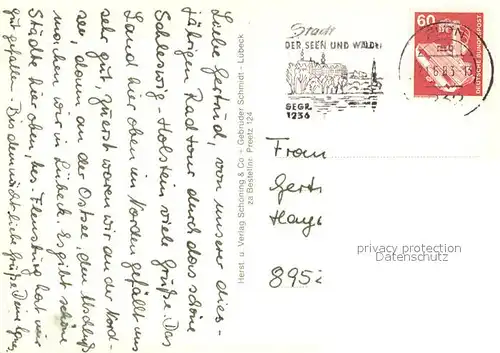 Liebe Gertrud, von unserer dies-
jährigen Radtour durch das schöne
Schleswig-Holstein viele Grüße. Das
Land hier oben im Norden gefällt uns
sehr gut, zuerst waren wir an der Nord-
see, dann an der Ostsee, den Abschluß
machen wir in Lübeck. Es gibt schöne
Städte hier oben, bes. Flensburg hat mir
gut gefallen. Bis demnächst liebe Grüße Deine
Herst. u. Verlag Schöning & Co - Gebrüder Schmidt - Lübeck
za Bestellnr. Preetz 124
Stadt
DER SEEN UND WÄLDER
BEGR.
1236
60
DEUTSCHE BUNDESPOST
Frau
Gert
Hays
895
privacy protection
Datenschutz